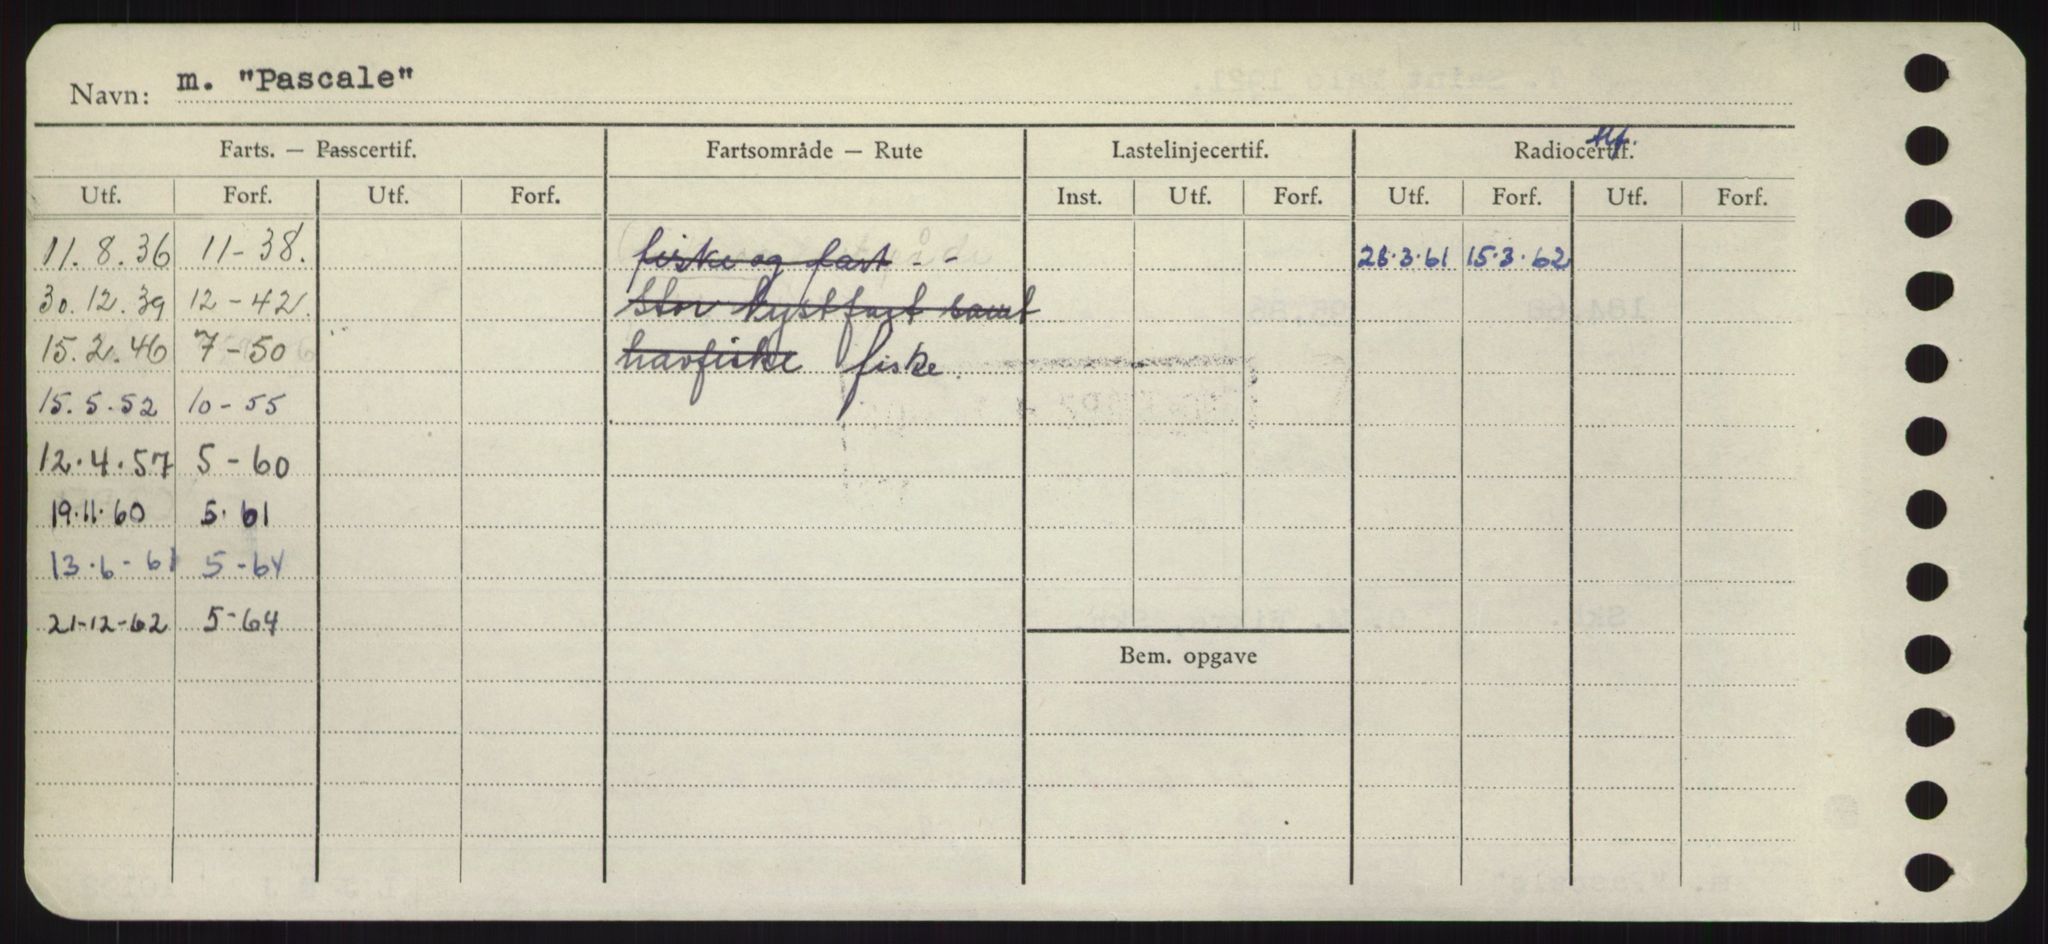 Navn: m. "Pascale"
Farts. — Passcertif. Fartsområde — Rute Lastelinjecertif. Radiocertif. tlf.
Utf. Forf. Utf. Forf. Inst. Utf. Forf. Utf. Forf. Utf. Forf.
11.8.36 11-38. fiske og fart - - 28.3.61 15.3.62
30.12.39 12-42. Stor kystfart samt
15.2.46 7-50 havfiske fiske.
15.5.52 10-55
12.4.57 5-60
19.11.60 5.61
13.6-61 5-64
21-12-62 5-64
Bem. opgave